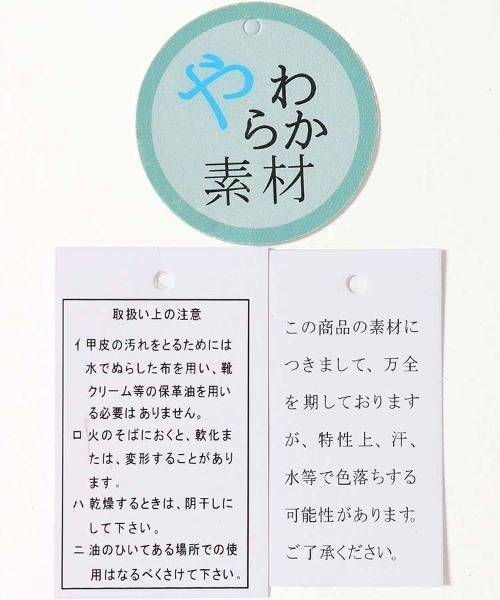 やわ
らか
素材
取扱い上の注意
イ 甲皮の汚れをとるためには
水でぬらした布を用い、靴
クリーム等の保革油を用い
る必要はありません。
ロ 火のそばにおくと、軟化ま
たは、変形することがあり
ます。
ハ 乾燥するときは、陰干しに
して下さい。
ニ 油のひいてある場所での使
用はなるべくさけて下さい。
この商品の素材に
つきまして、万全
を期しております
が、特性上、汗、
水等で色落ちする
可能性があります。
ご了承ください。